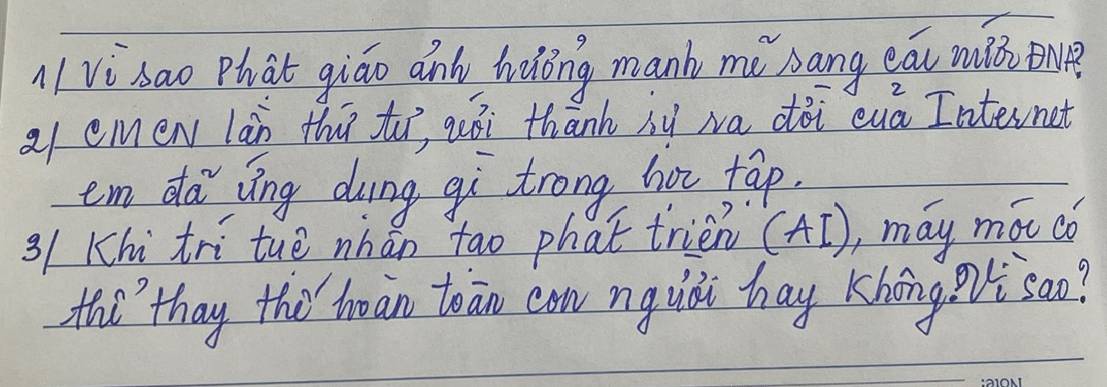 1/ Vì sao Phật giáo ảnh hưởng mạnh mẽ sang các nước ĐNA?
2/ CMCN lần thứ tư, với thành sự ra đời của Internet
em đã ứng dụng gì trong học tập.
3/ Khi trí tuệ nhân tạo phát triển (AI), máy móc có
thể thay thế hoàn toàn con người hay không? Vì sao?
Note: